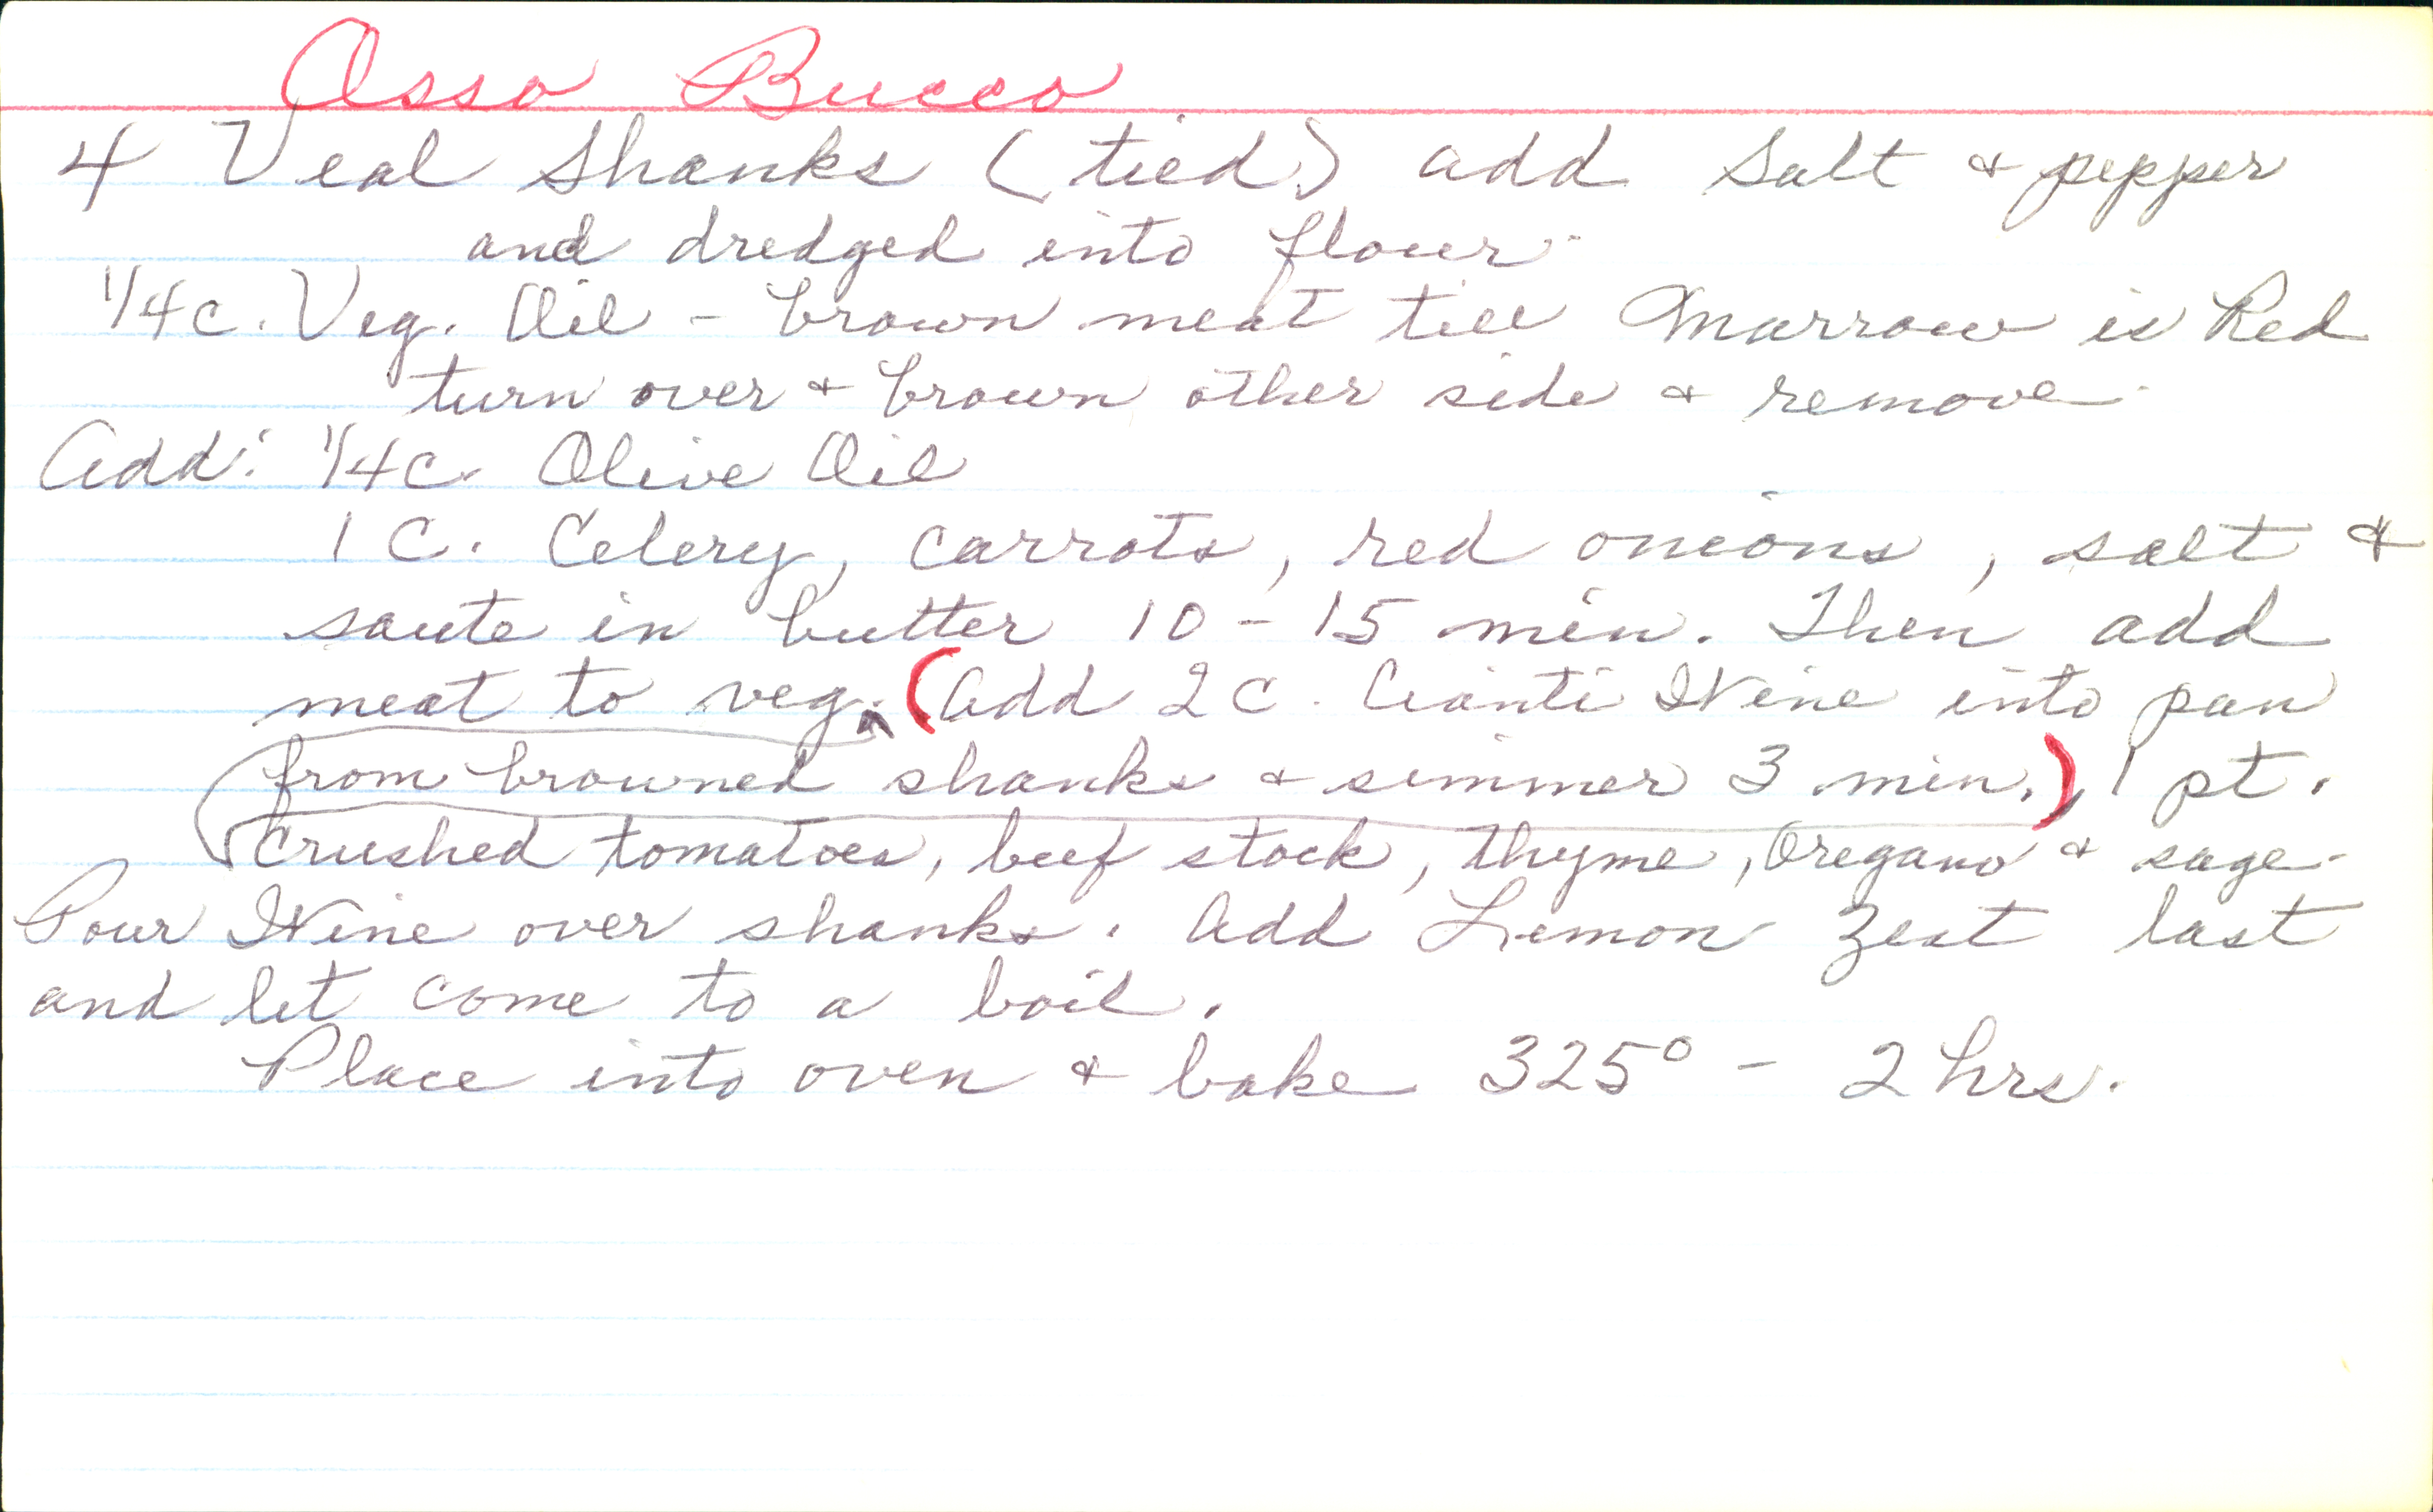 Osso Bucco
4 Veal Shanks (tied) add Salt & pepper
and dredged into flour.
1/4 c. Veg. Oil - brown meat till Marrow is Red
turn over & brown other side & remove.
Add: 1/4 c. Olive Oil
1 C. Celery, carrots, red onions, salt &
saute in butter 10-15 min. Then add
meat to veg. (Add 2 C. Cianti Wine into pan
from browned shanks & simmer 3 min.), 1 pt.
crushed tomatoes, beef stock, thyme, Oregano & sage.
Pour Wine over shanks. Add Lemon Zest last
and let come to a boil.
Place into oven & bake 325° - 2 hrs.